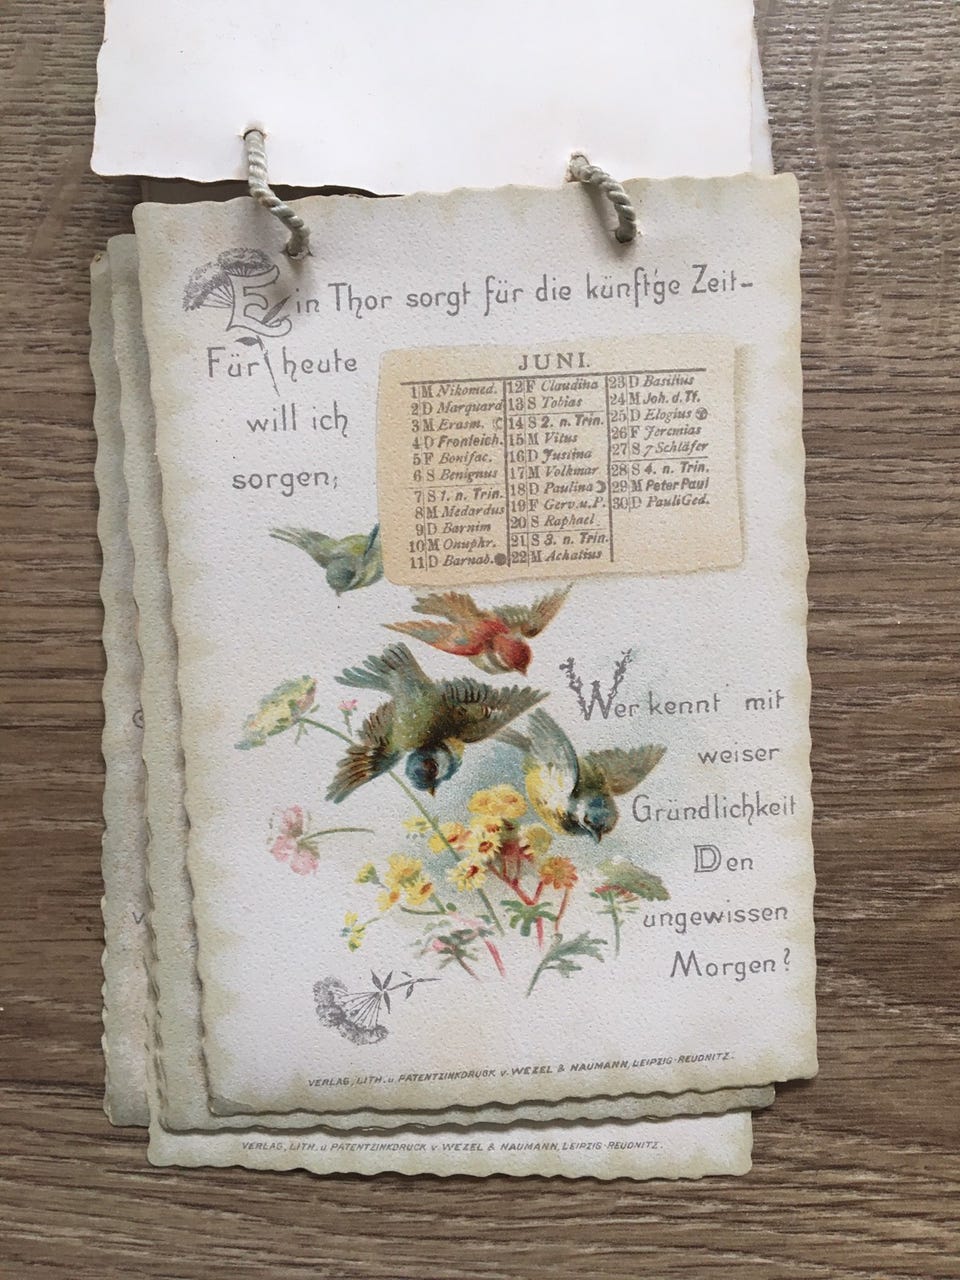 Ein Thor sorgt für die künft'ge Zeit-
Für heute
will ich
sorgen;
JUNI.
1 M Nikomed.
2 D Marquard
3 M Erasm.
4 D Fronleich.
5 F Bonifac.
6 S Benignus
7 S 1. n. Trin.
8 M Medardus
9 D Barnim
10 M Onuphr.
11 D Barnab.
12 F Claudina
13 S Tobias
14 S 2. n. Trin.
15 M Vitus
16 D Justina
17 M Volkmar
18 D Paulina
19 F Gerv. u. P.
20 S Raphael
21 S 3. n. Trin.
22 M Achatius
23 D Basilius
24 M Joh. d. Tf.
25 D Elogius
26 F Jeremias
27 S 7 Schläfer
28 S 4. n. Trin.
29 M Peter Paul
30 D Pauli Ged.
Wer kennt mit
weiser
Gründlichkeit
Den
ungewissen
Morgen?
VERLAG, LITH. u. PATENTZINKDRUCK v. WEZEL & NAUMANN, LEIPZIG-REUDNITZ.
VERLAG, LITH. u PATENTZINKDRUCK v. WEZEL & NAUMANN, LEIPZIG-REUDNITZ.